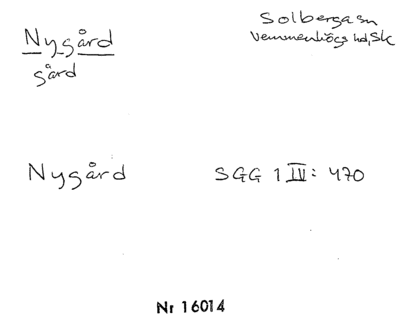 Nygård
gård
Solberga sn
Vemmenhögs hd, Sk
Nygård
SGG 1 IV: 470
Nr 16014